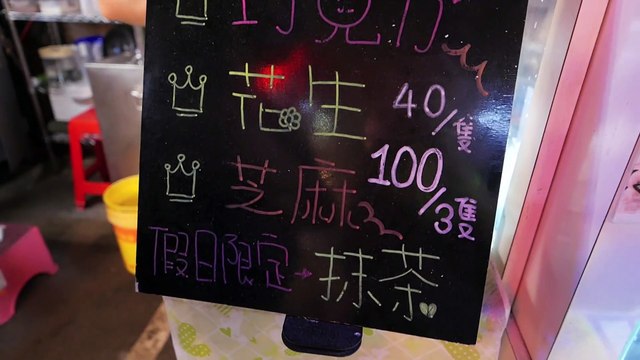 巧克力
花生 40/隻
芝麻 100/3隻
假日限定→抹茶